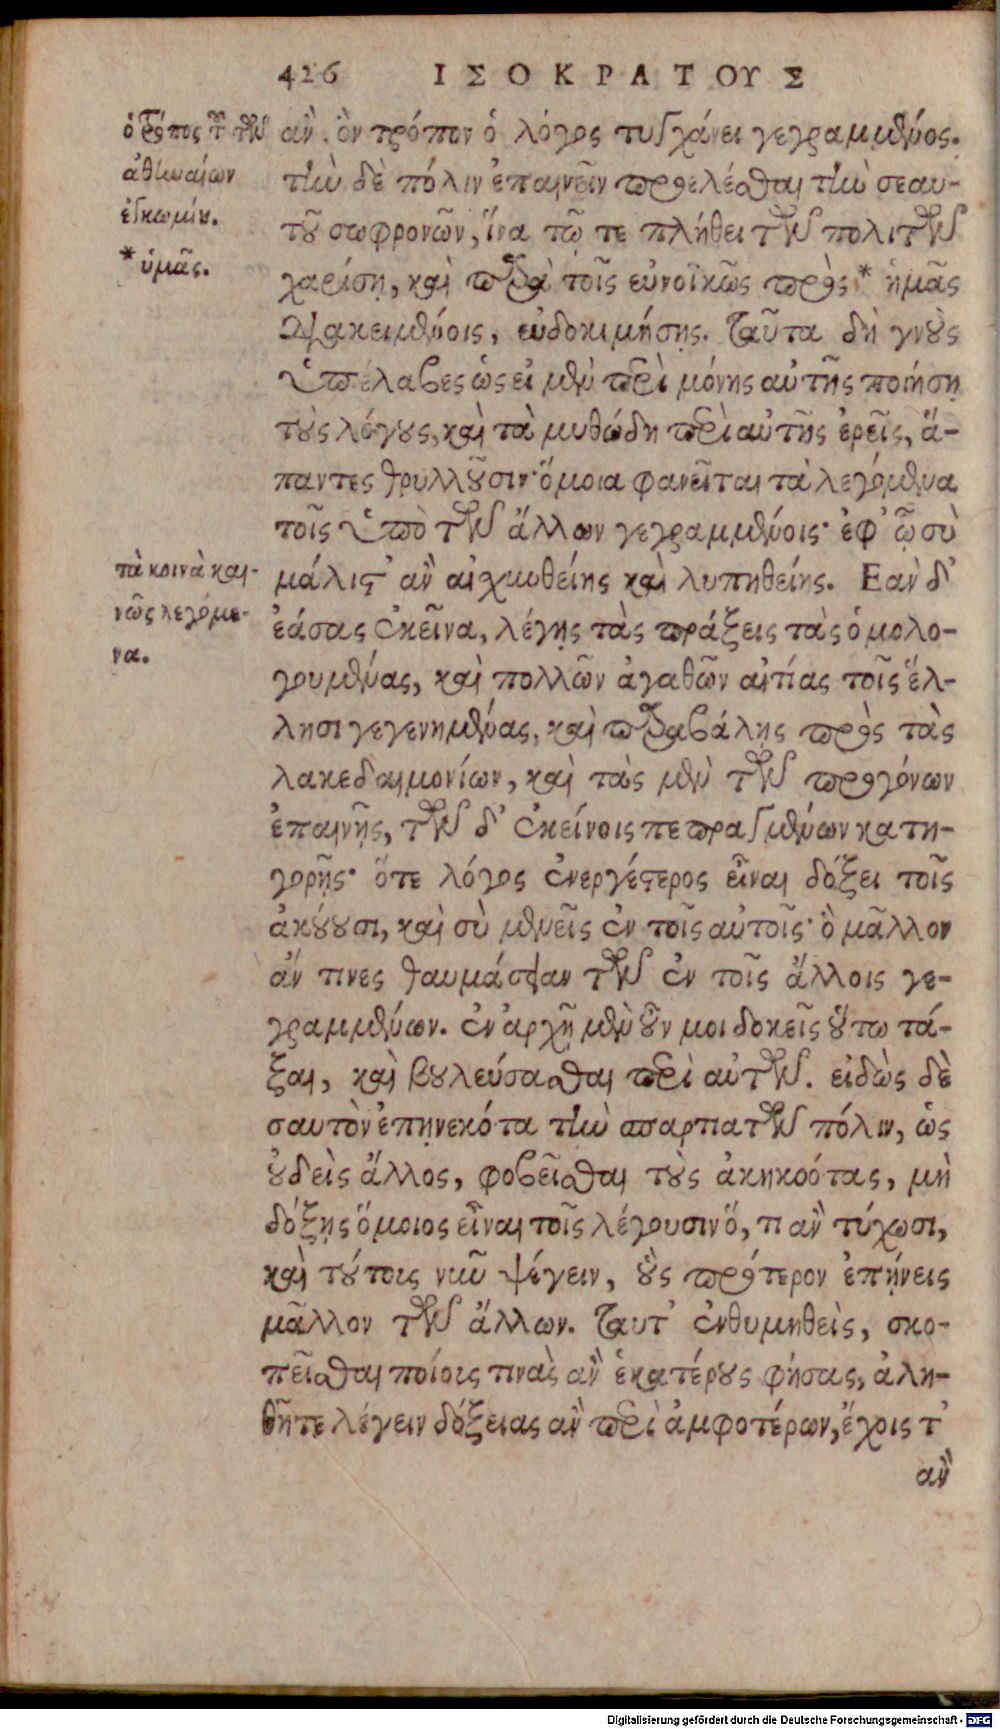 426 ΙΣΟΚΡΑΤΟΥΣ
ὁ τρόπος τοῦ τῶν
ἀθηναίων
ἐγκωμίου.
* ὑμᾶς.
ἂν ὃν τρόπον ὁ λόγος τυγχάνει γεγραμμένος.
τὴν δὲ πόλιν ἐπαινεῖν προελέσθαι τὴν σεαυ-
τοῦ σωφρονῶν, ἵνα τῷ τε πλήθει τῶν πολιτῶν
χαρίσῃ, καὶ παρὰ τοῖς εὐνοϊκῶς πρὸς * ἡμᾶς
διακειμένοις, εὐδοκιμήσῃς. Ταῦτα δὴ γνοὺς
ὑπέλαβες ὡς εἰ μὲν περὶ μόνης αὐτῆς ποιήσῃ
τοὺς λόγους, καὶ τὰ μυθώδη περὶ αὐτῆς ἐρεῖς, ἅ-
παντες θρυλλοῦσιν· ὅμοια φανεῖται τὰ λεγόμενα
τοῖς ὑπὸ τῶν ἄλλων γεγραμμένοις· ἐφ' ᾧ σὺ
τὰ κοινὰ και-
νῶς λεγόμε-
να.
μάλιστ' ἂν αἰσχυνθείης καὶ λυπηθείης. Εὰν δ'
ἐάσας ἐκεῖνα, λέγῃς τὰς πράξεις τὰς ὁμολο-
γουμένας, καὶ πολλῶν ἀγαθῶν αἰτίας τοῖς ἕλ-
λησι γεγενημένας, καὶ παραβάλῃς πρὸς τὰς
λακεδαιμονίων, καὶ τὰς μὲν τῶν προγόνων
ἐπαινῇς, τῶν δ' ἐκείνοις πεπραγμένων κατη-
γορῇς· ὅτε λόγος ἐνεργέστερος εἶναι δόξει τοῖς
ἀκούουσι, καὶ σὺ μενεῖς ἐν τοῖς αὐτοῖς· ὃ μᾶλλον
ἄν τινες θαυμάσειαν τῶν ἐν τοῖς ἄλλοις γε-
γραμμένων. ἐν ἀρχῇ μὲν οὖν μοι δοκεῖς οὕτω τά-
ξαι, καὶ βουλεύσασθαι περὶ αὐτῶν. εἰδὼς δὲ
σαυτὸν ἐπῃνεκότα τὴν σπαρτιατῶν πόλιν, ὡς
οὐδεὶς ἄλλος, φοβεῖσθαι τοὺς ἀκηκοότας, μὴ
δόξῃς ὅμοιος εἶναι τοῖς λέγουσιν ὅ, τι ἂν τύχωσι,
καὶ τούτοις νῦν ψέγειν, οὓς πρότερον ἐπῄνεις
μᾶλλον τῶν ἄλλων. Ταῦτ' ἐνθυμηθεὶς, σκο-
πεῖσθαι ποίοις τινὰς ἂν ἑκατέρους φήσας, ἀλη-
θῆ τε λέγειν δόξειας ἂν περὶ ἀμφοτέρων, ἔχοις τ'
ἂν
Digitalisierung gefördert durch die Deutsche Forschungsgemeinschaft - DFG